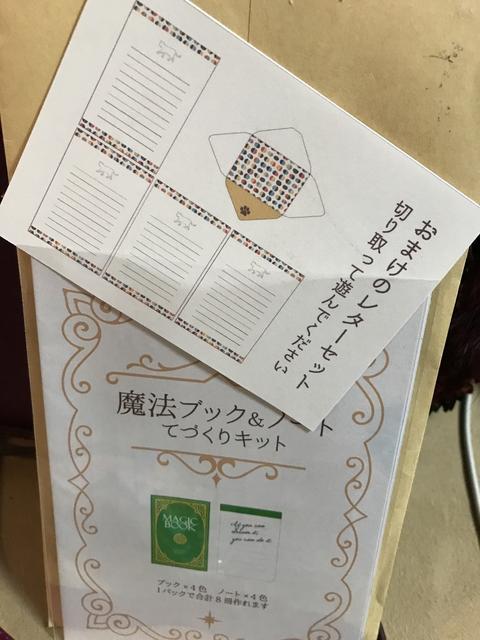 おまけのレターセット
切り取って遊んでください
魔法ブック&ノート
てづくりキット
MAGIC
BOOK
If you can
dream it,
you can do it.
ブック×4色 ノート×4色
1パックで合計8冊作れます